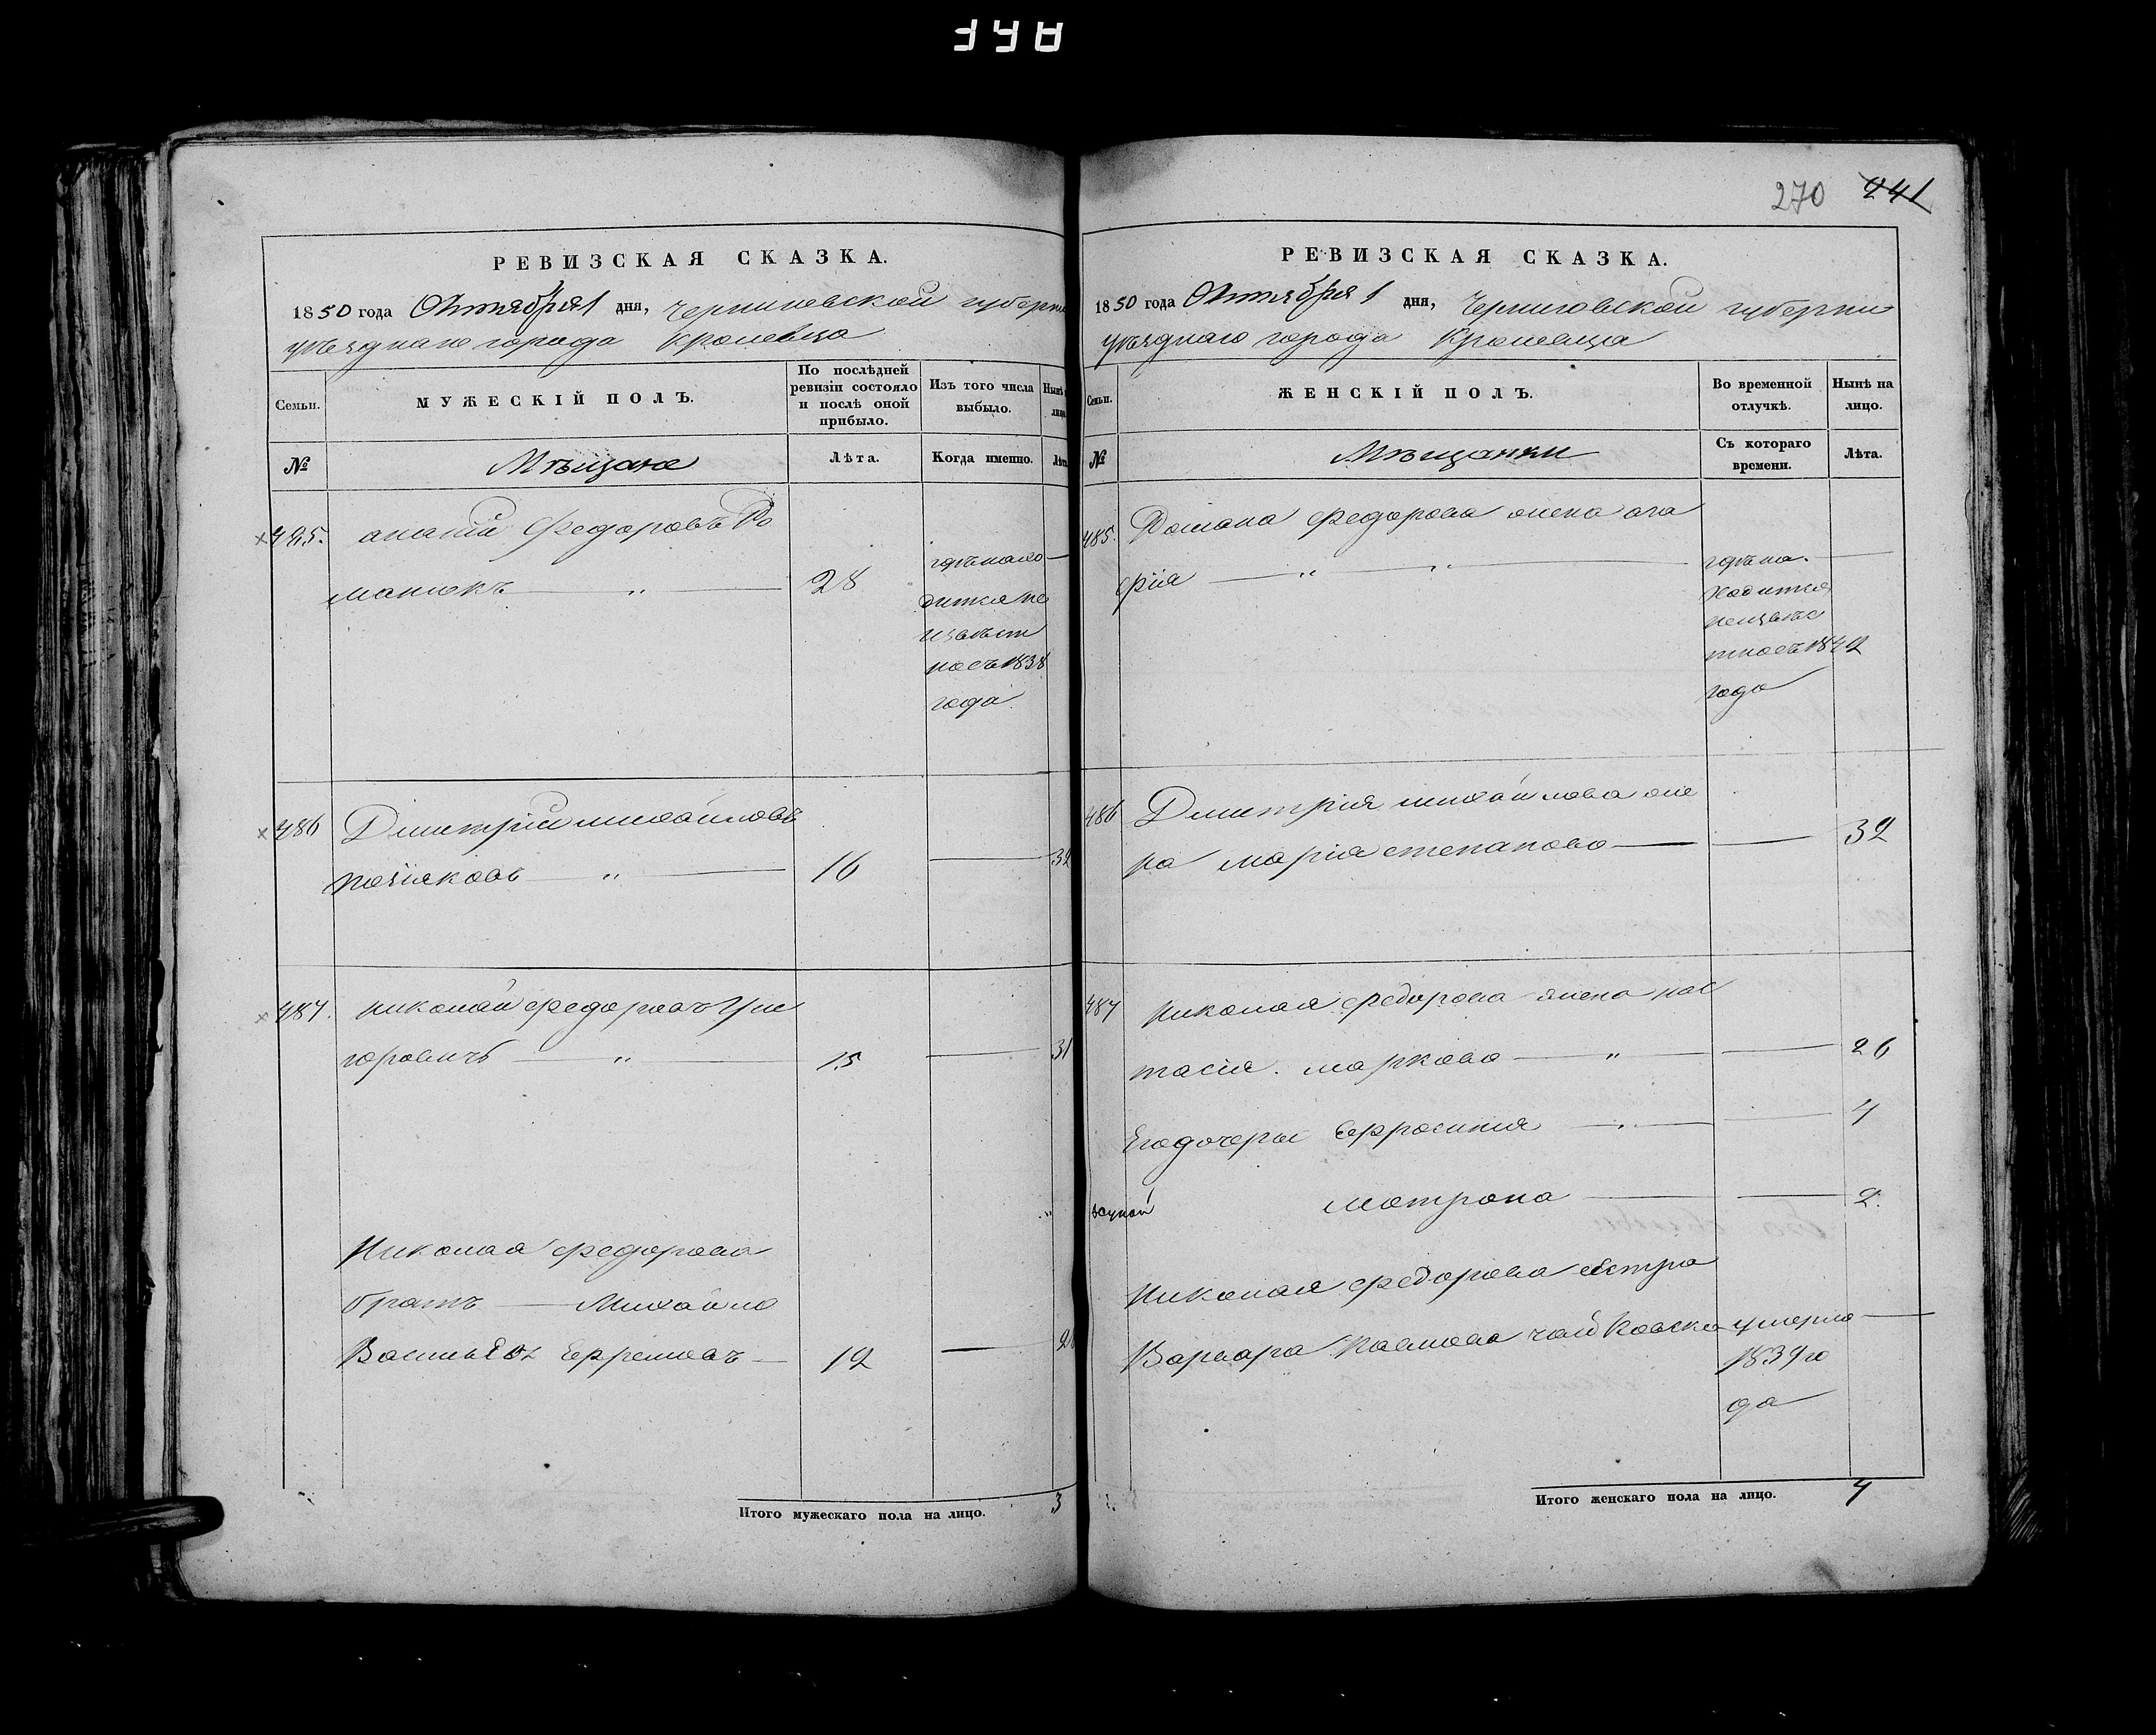 270 241
РЕВИЗСКАЯ СКАЗКА.
1850 года Октября 1 дня, Черниговской губерн
уѣзднаго города Кролевца
Семьи.
МУЖЕСКІЙ ПОЛЪ.
По послѣдней ревизіи состояло и послѣ оной прибыло.
Изъ того числа выбыло.
Нынѣ
лицо
№
Мѣщане
Лѣта.
Когда именно.
Лѣта
485. Федоровъ Ро
манюкъ — " — 28
гдѣ нахо
дится не
извѣст
но съ 1838
года.
486 Дмитрий михайловъ
— " — 16 — 32
487. николай федоровъ Гри
горовичъ — " — 15 — 31
Николая федорова
братъ — Михайло
Ефремовъ — 12 —
Итого мужескаго пола на лицо. 3
РЕВИЗСКАЯ СКАЗКА.
1850 года Октября 1 дня, Черниговской губерни
уѣзднаго города Кролевца
Семьи.
ЖЕНСКІЙ ПОЛЪ.
Во временной отлучкѣ.
Нынѣ на лицо.
№
Мѣщанки
Съ котораго времени.
Лѣта.
485. федорова жена ага
фія — " — " —
гдѣ на-
ходится
неизвѣс
тно съ 1842
года
486 Дмитрия михайлова же
на марія степанова — — 32
487 николая федорова жена нас
тасія. маркова — " — — 26
Его дочери Ефросинія — " — — 4
матрона — — 2.
Николая федорова сестра
Варвара умерла —
1839 го
да
Итого женскаго пола на лицо. 4